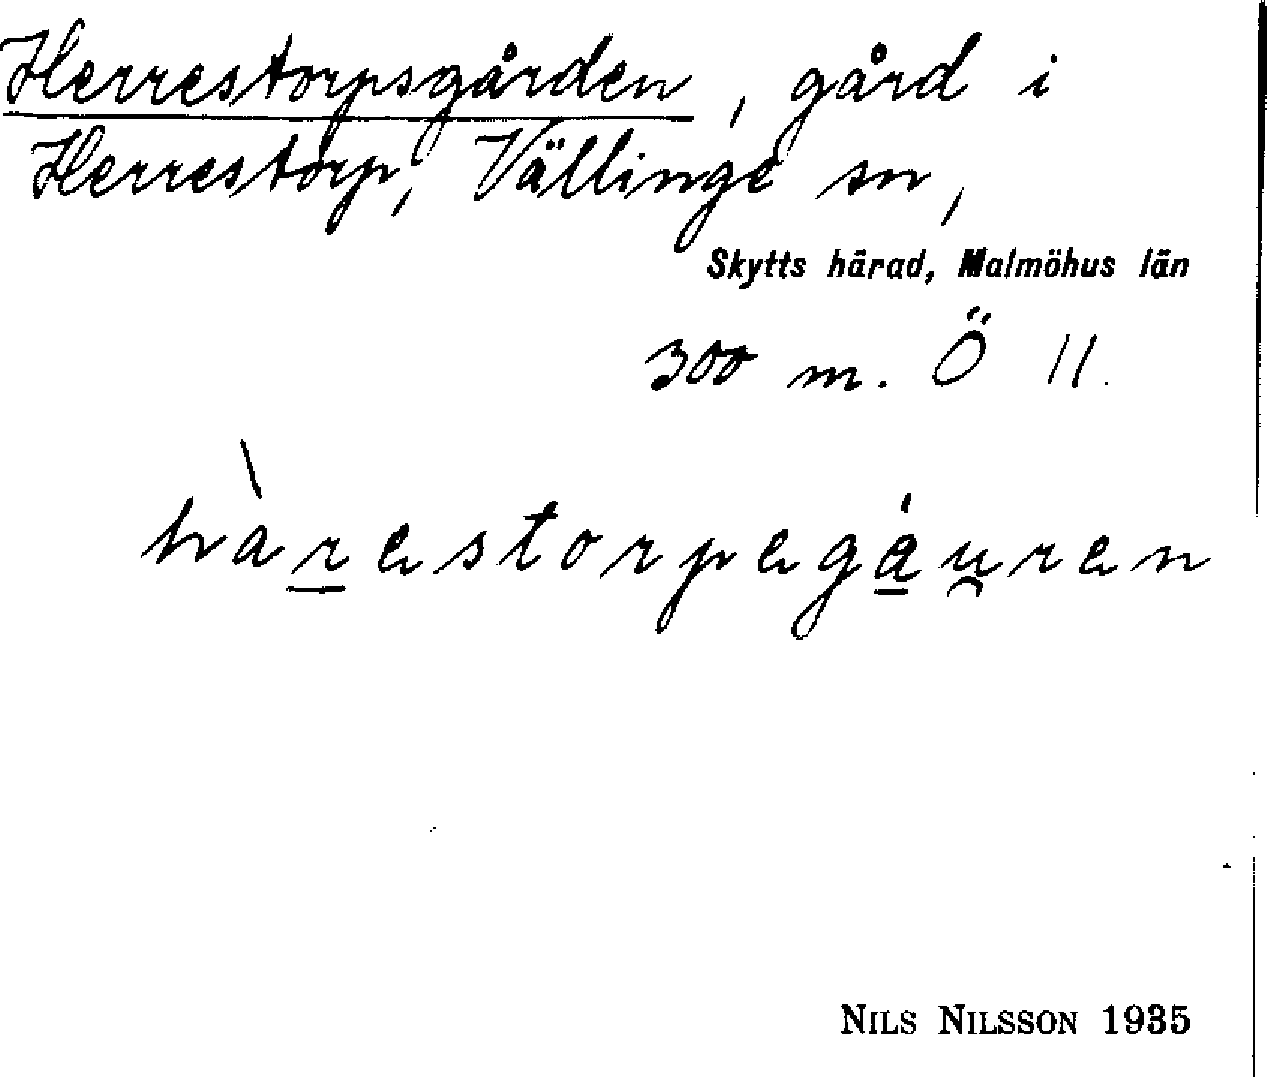 Herrestorpsgården, gård i
Herrestorp, Vällinge sn,
Skytts härad, Malmöhus län
300 m. Ö 11.
hàr̲estorpegá̲u̯ren
NILS NILSSON 1935